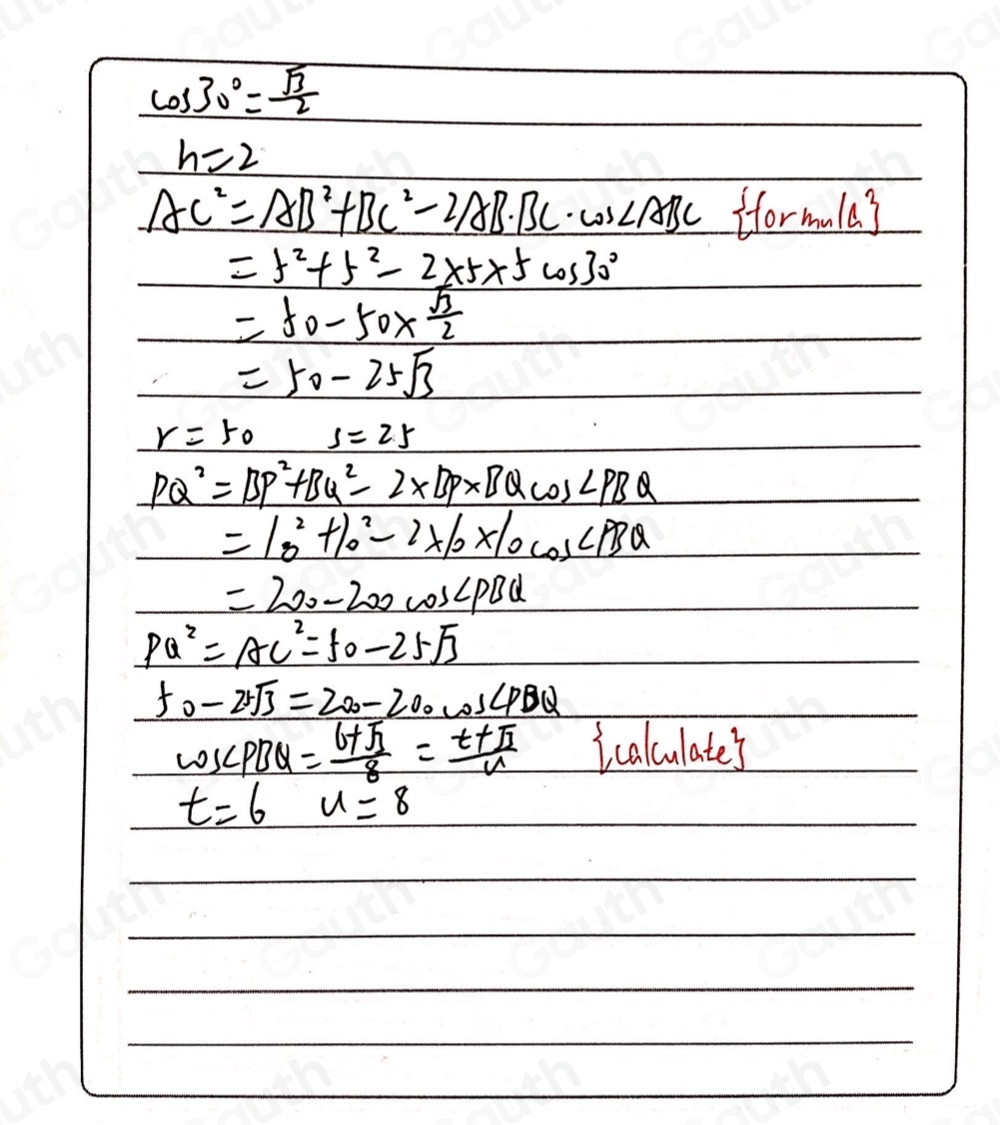 cos30°=√3/2
n=2
AC²=AB²+BC²-2AB·BC·cos∠ABC {formula}
=5²+5²-2×5×5cos30°
=50-50×√3/2
=50-25√3
r=50 s=25
PQ²=BP²+BQ²-2×BP×BQcos∠PBQ
=10²+10²-2×10×10cos∠PBQ
=200-200cos∠PBQ
PQ²=AC²=50-25√3
50-25√3=200-200cos∠PBQ
cos∠PBQ=6+√3/8=t+√3/u {calculate}
t=6 u=8